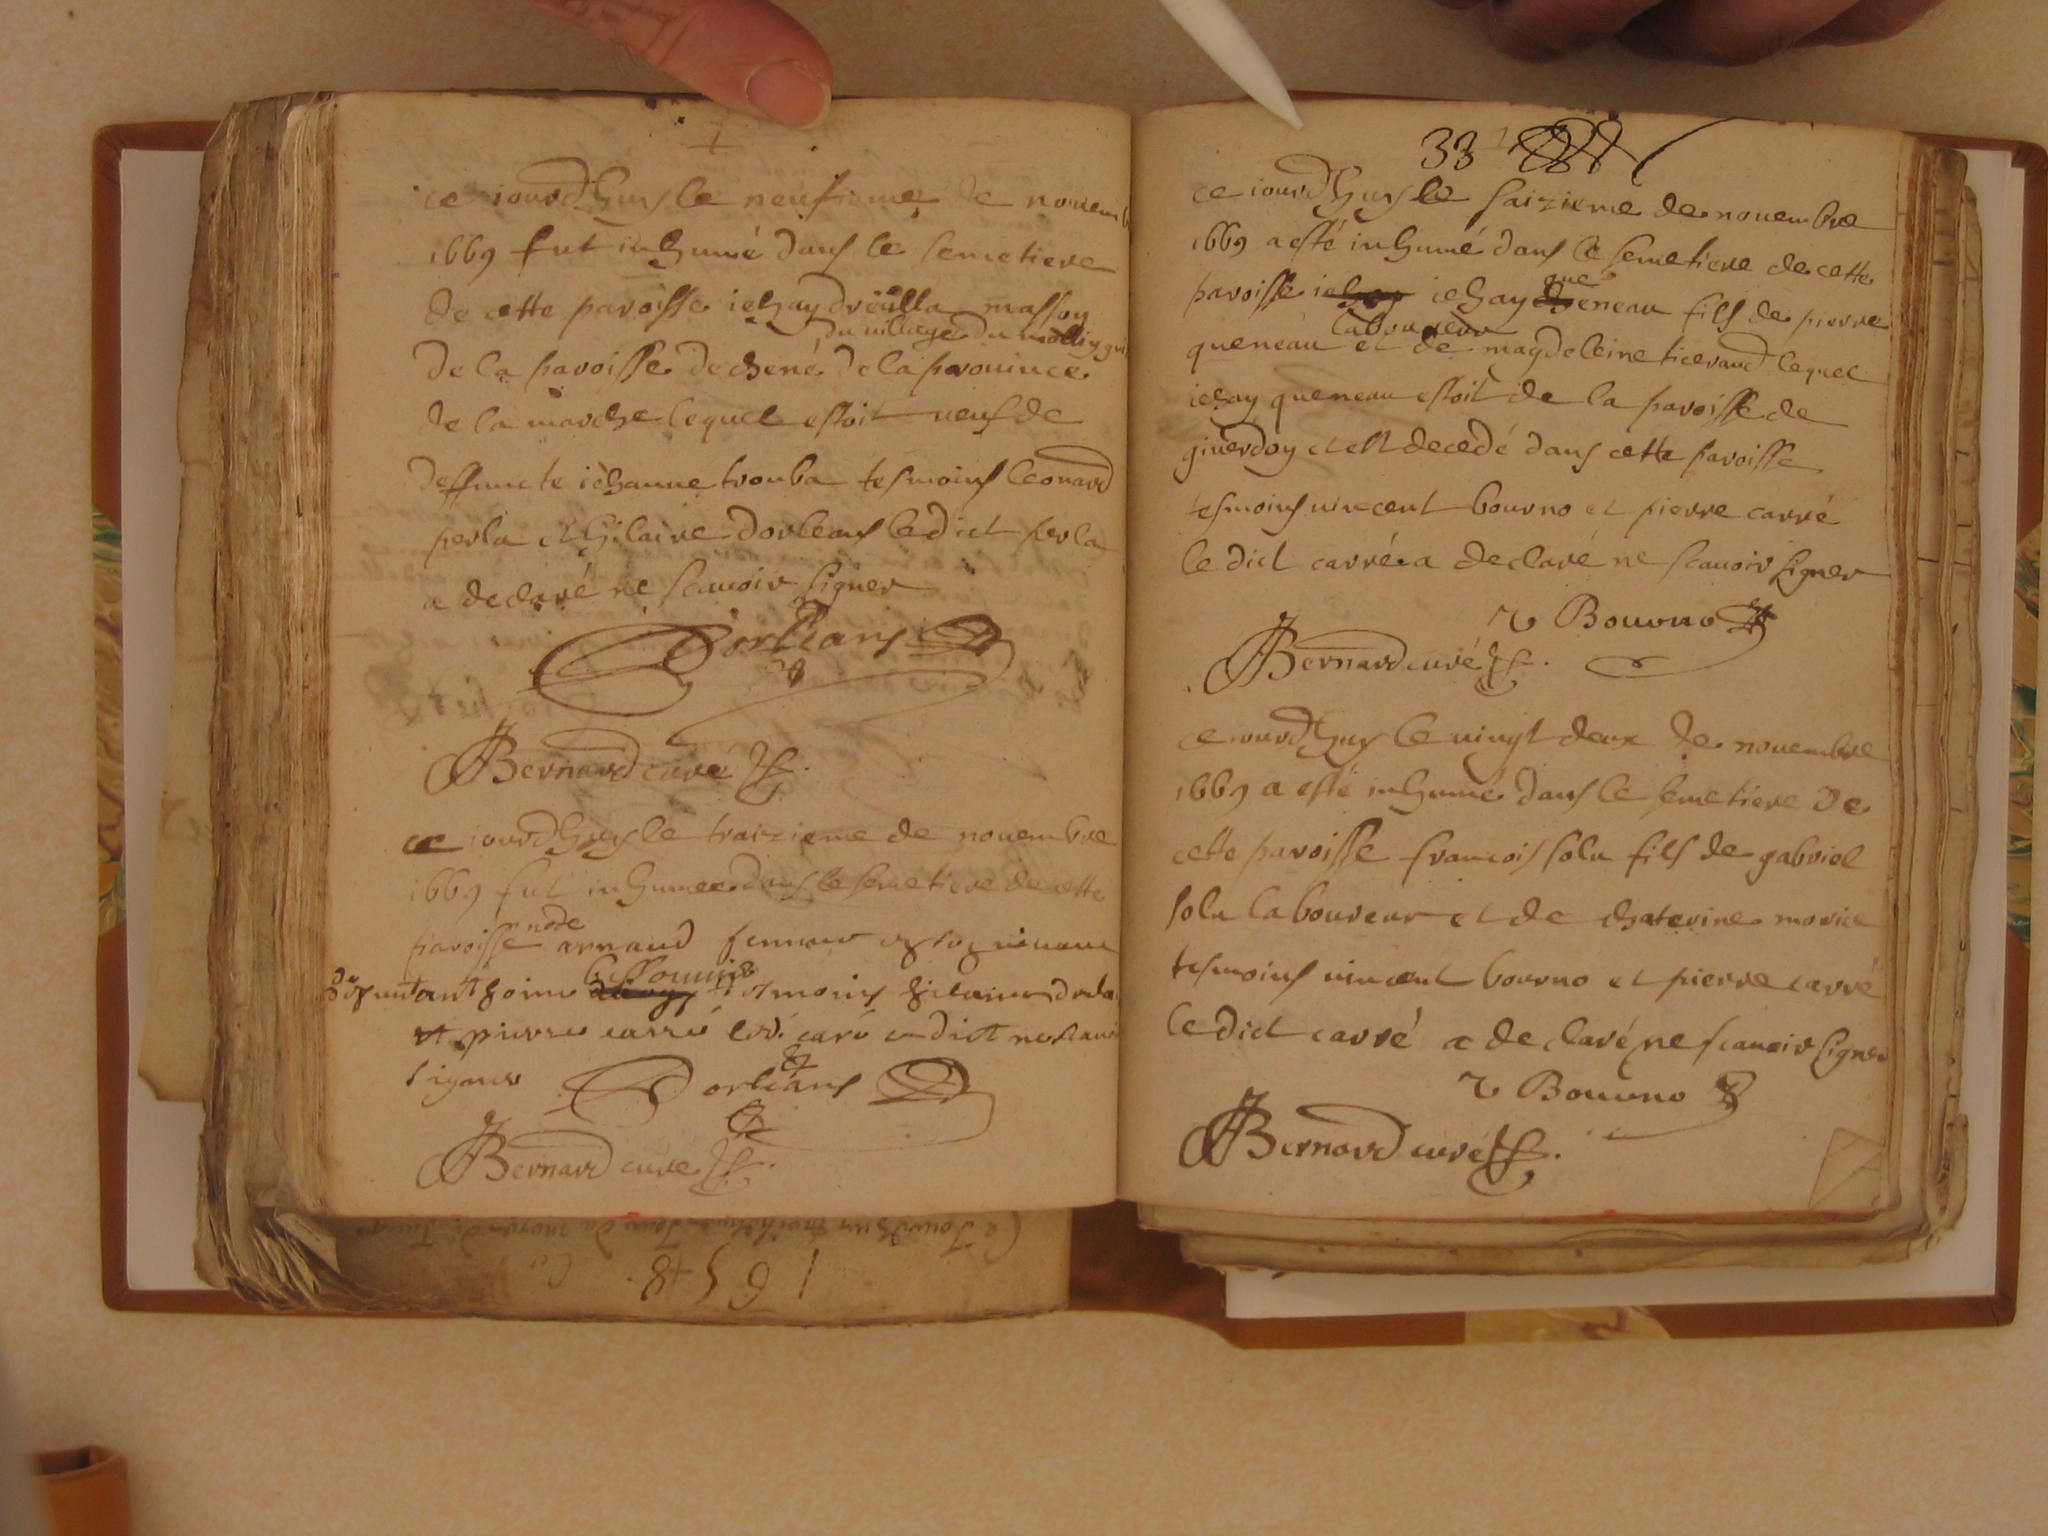 ce iourdhuy le neufieme de nouemb
1669 fut inhumé dans le semetiere
de cette paroisse iehan massoy
du village du
de la paroisse de chené de la prouince
de la marche lequel estoit ueuf de
deffuncte iehanne trouba tesmoins leonard
perla et hilaire dorleans ledict perla
a declaré ne scauoir signer
Dorleans
Bernard curé
ce iourdhuy le traizieme de nouembre
1669 fut inhumee dans le semetiere de cette
paroisse arnaud femme
anthoine tesmoins
et pierre carré ne scauoir
signer Dorleans
Bernard curé
33
ce iourdhuy le saizieme de nouembre
1669 a esté inhumé dans le semetiere de cette
que
paroisse iehan iehay cheneau fils de pierre
laboureur
queneau et de magdeleine ticeraud lequel
iehay queneau estoit de la paroisse de
giuerdoy et est decedé dans cette paroisse
tesmoins uincent bourno et pierre carré
le dict carré a declaré ne scauoir signer
V Bourno
Bernard curé
ce iourdhuy le uingt deux de nouembre
1669 a esté inhumé dans le semetiere de
cette paroisse francois solu fils de gabriel
solu laboureur et de chaterine morice
tesmoins uincent bourno et pierre carré
le dict carré a declaré ne scauoir signer
V Bourno
Bernard curé
1658